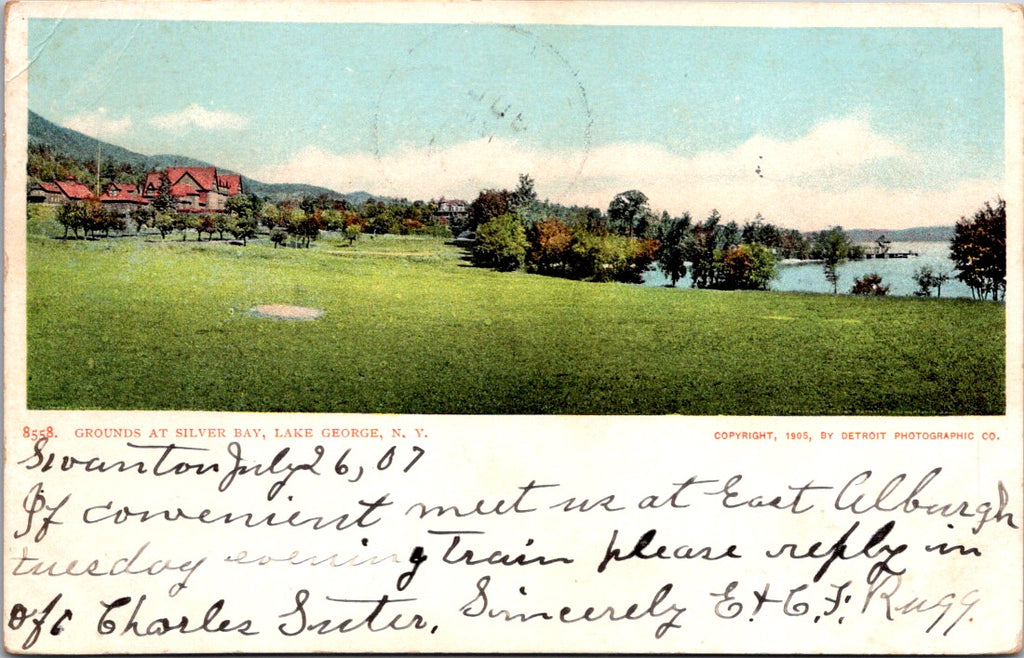 8558. GROUNDS AT SILVER BAY, LAKE GEORGE, N. Y.
COPYRIGHT, 1905, BY DETROIT PHOTOGRAPHIC CO.
Swanton July 26, 07
If convenient meet us at East Alburgh
tuesday evening Train please reply in
c/o Charles Suter. Sincerely E. & C. F. Rugg.